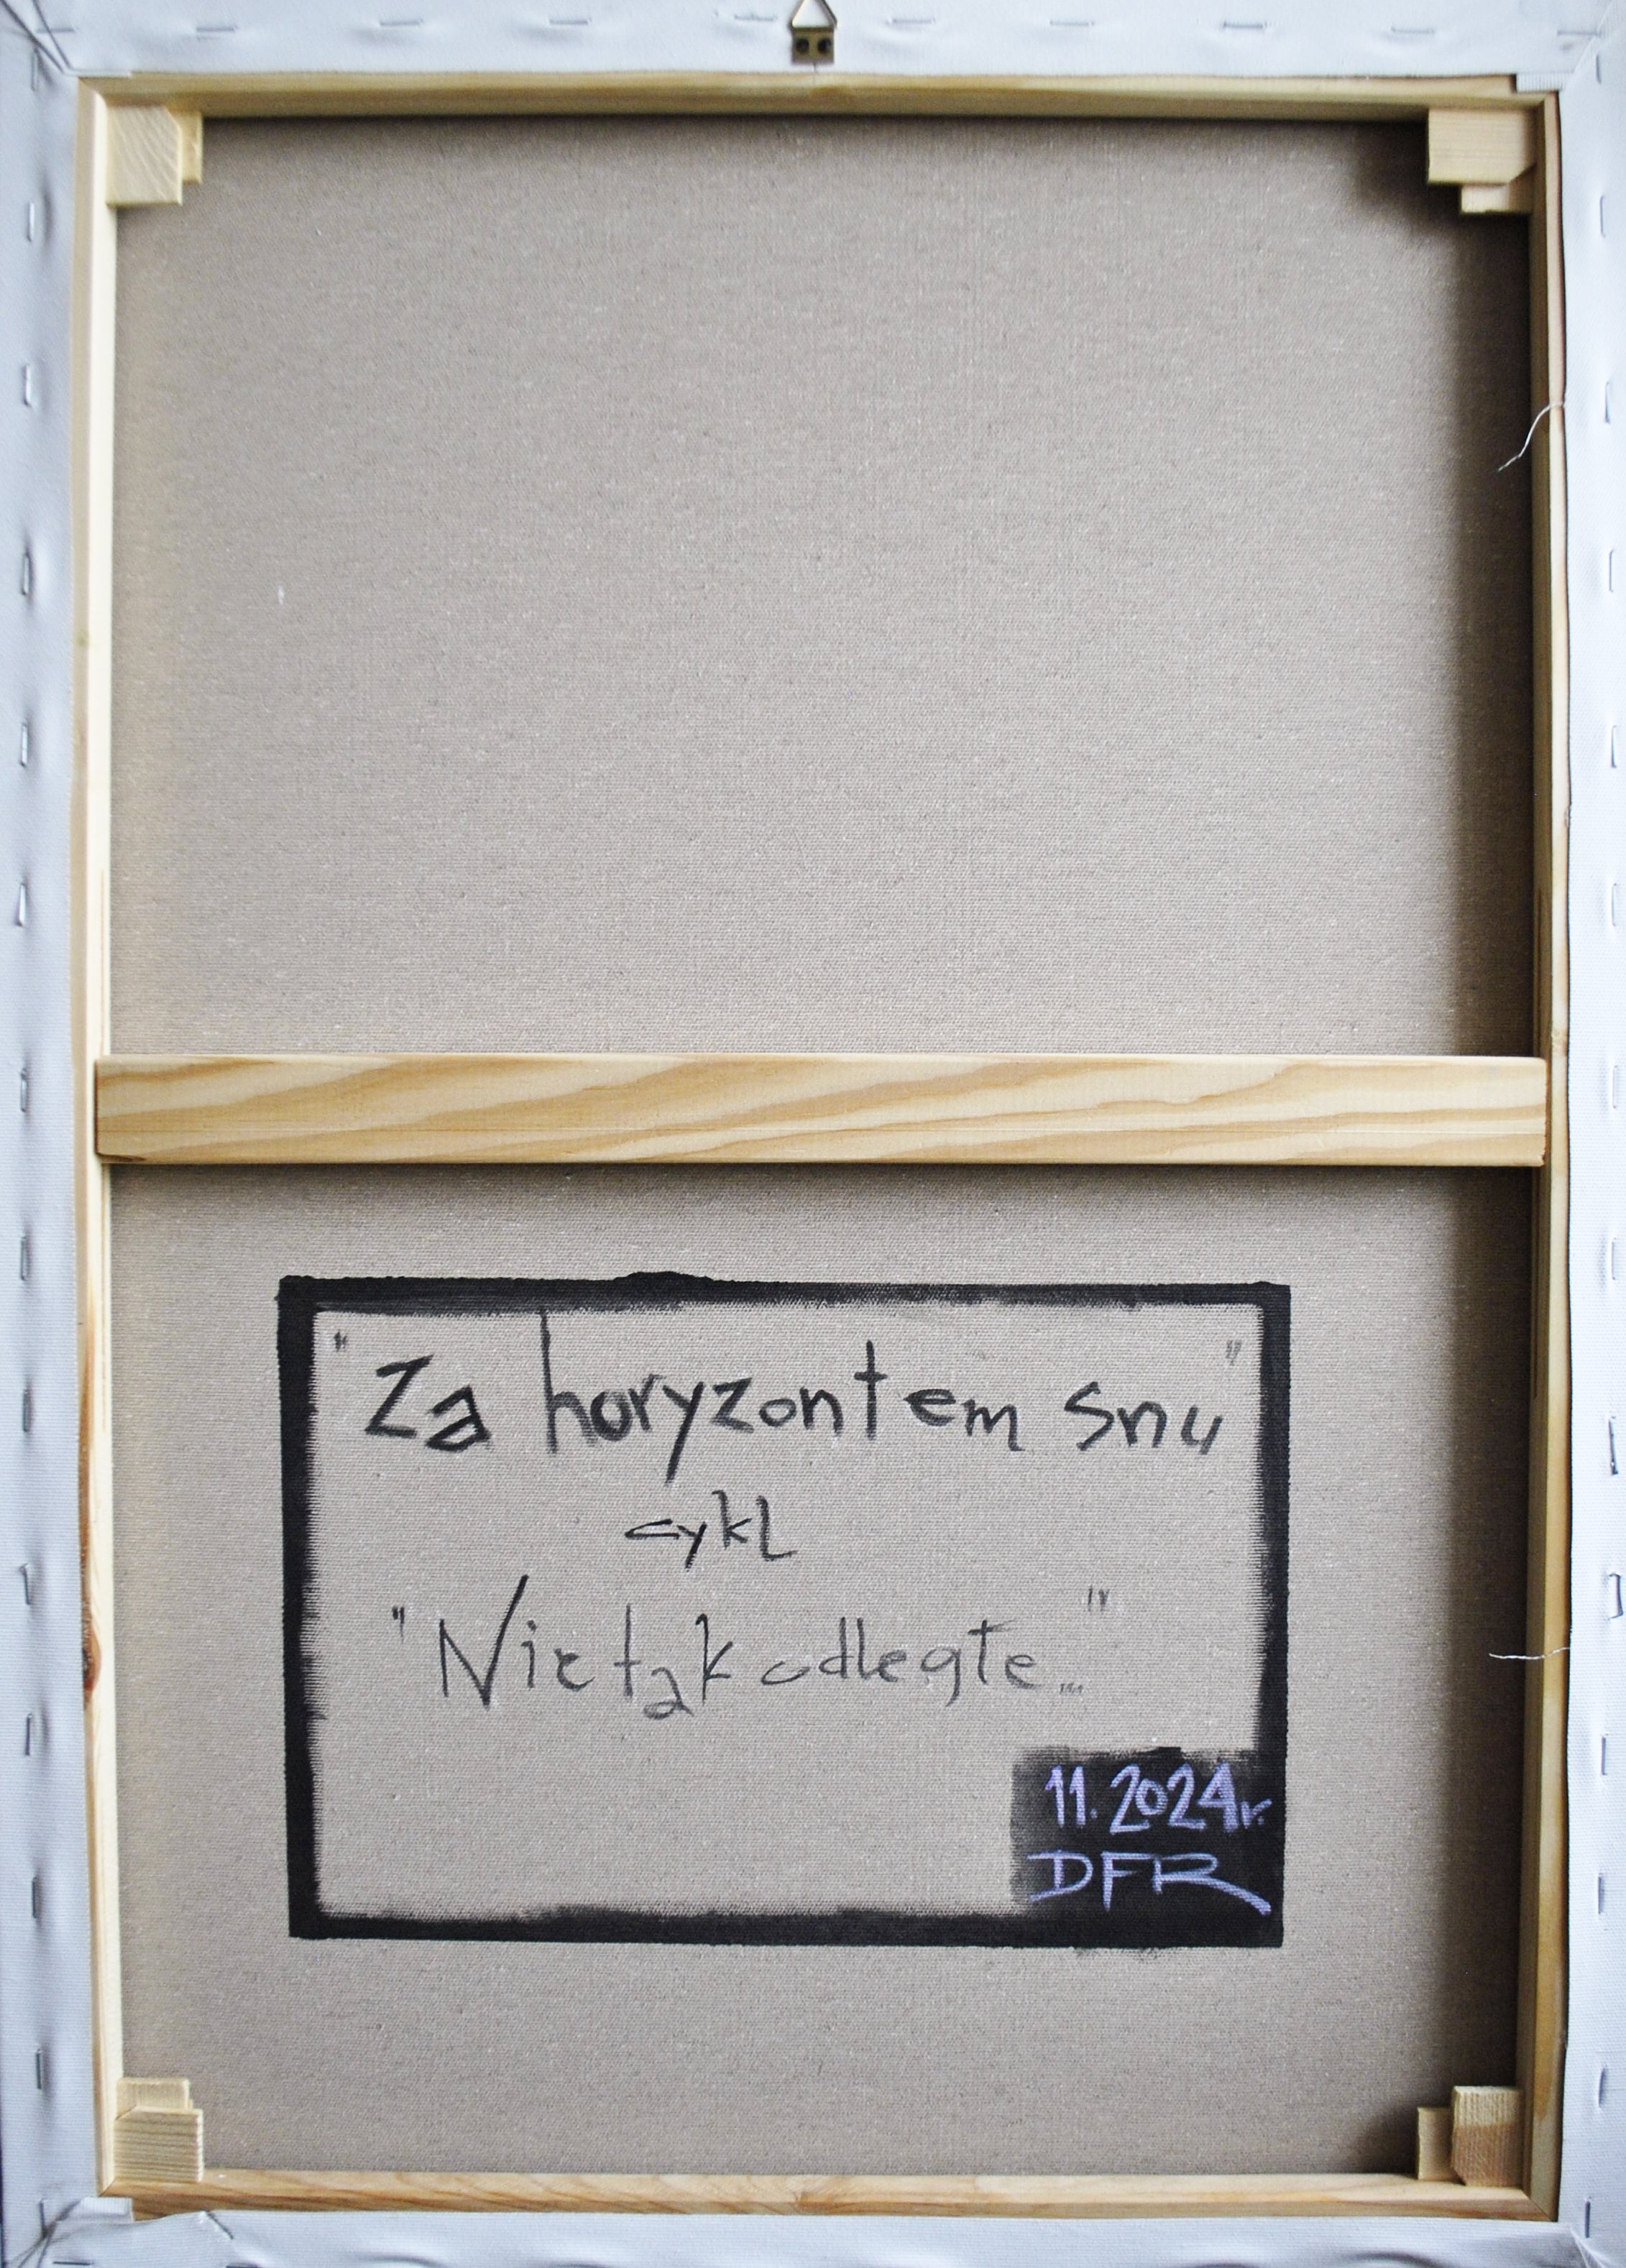 "Za horyzontem snu"
cykl
"Nie tak odległe..."
11.2024r.
DFR